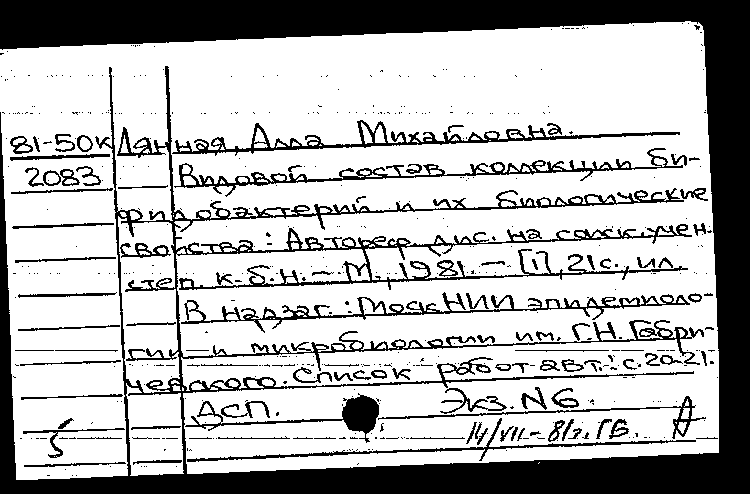 81-50К Лянная, Алла Михайловна.
2083 Видовой состав коллекции би-
фидобактерий и их биологические
свойства: Автореф. дис. на соиск. учен.
степ. к.б.н. – М., 1981. – [1], 21 с., ил.
В надзаг.: Моск НИИ эпидемиоло-
гии и микробиологии им. Г.Н. Габри-
чевского. Список работ авт.: с. 20-21.
ДСП. Экз. N6.
5 14/VII-81г. ГБ. А